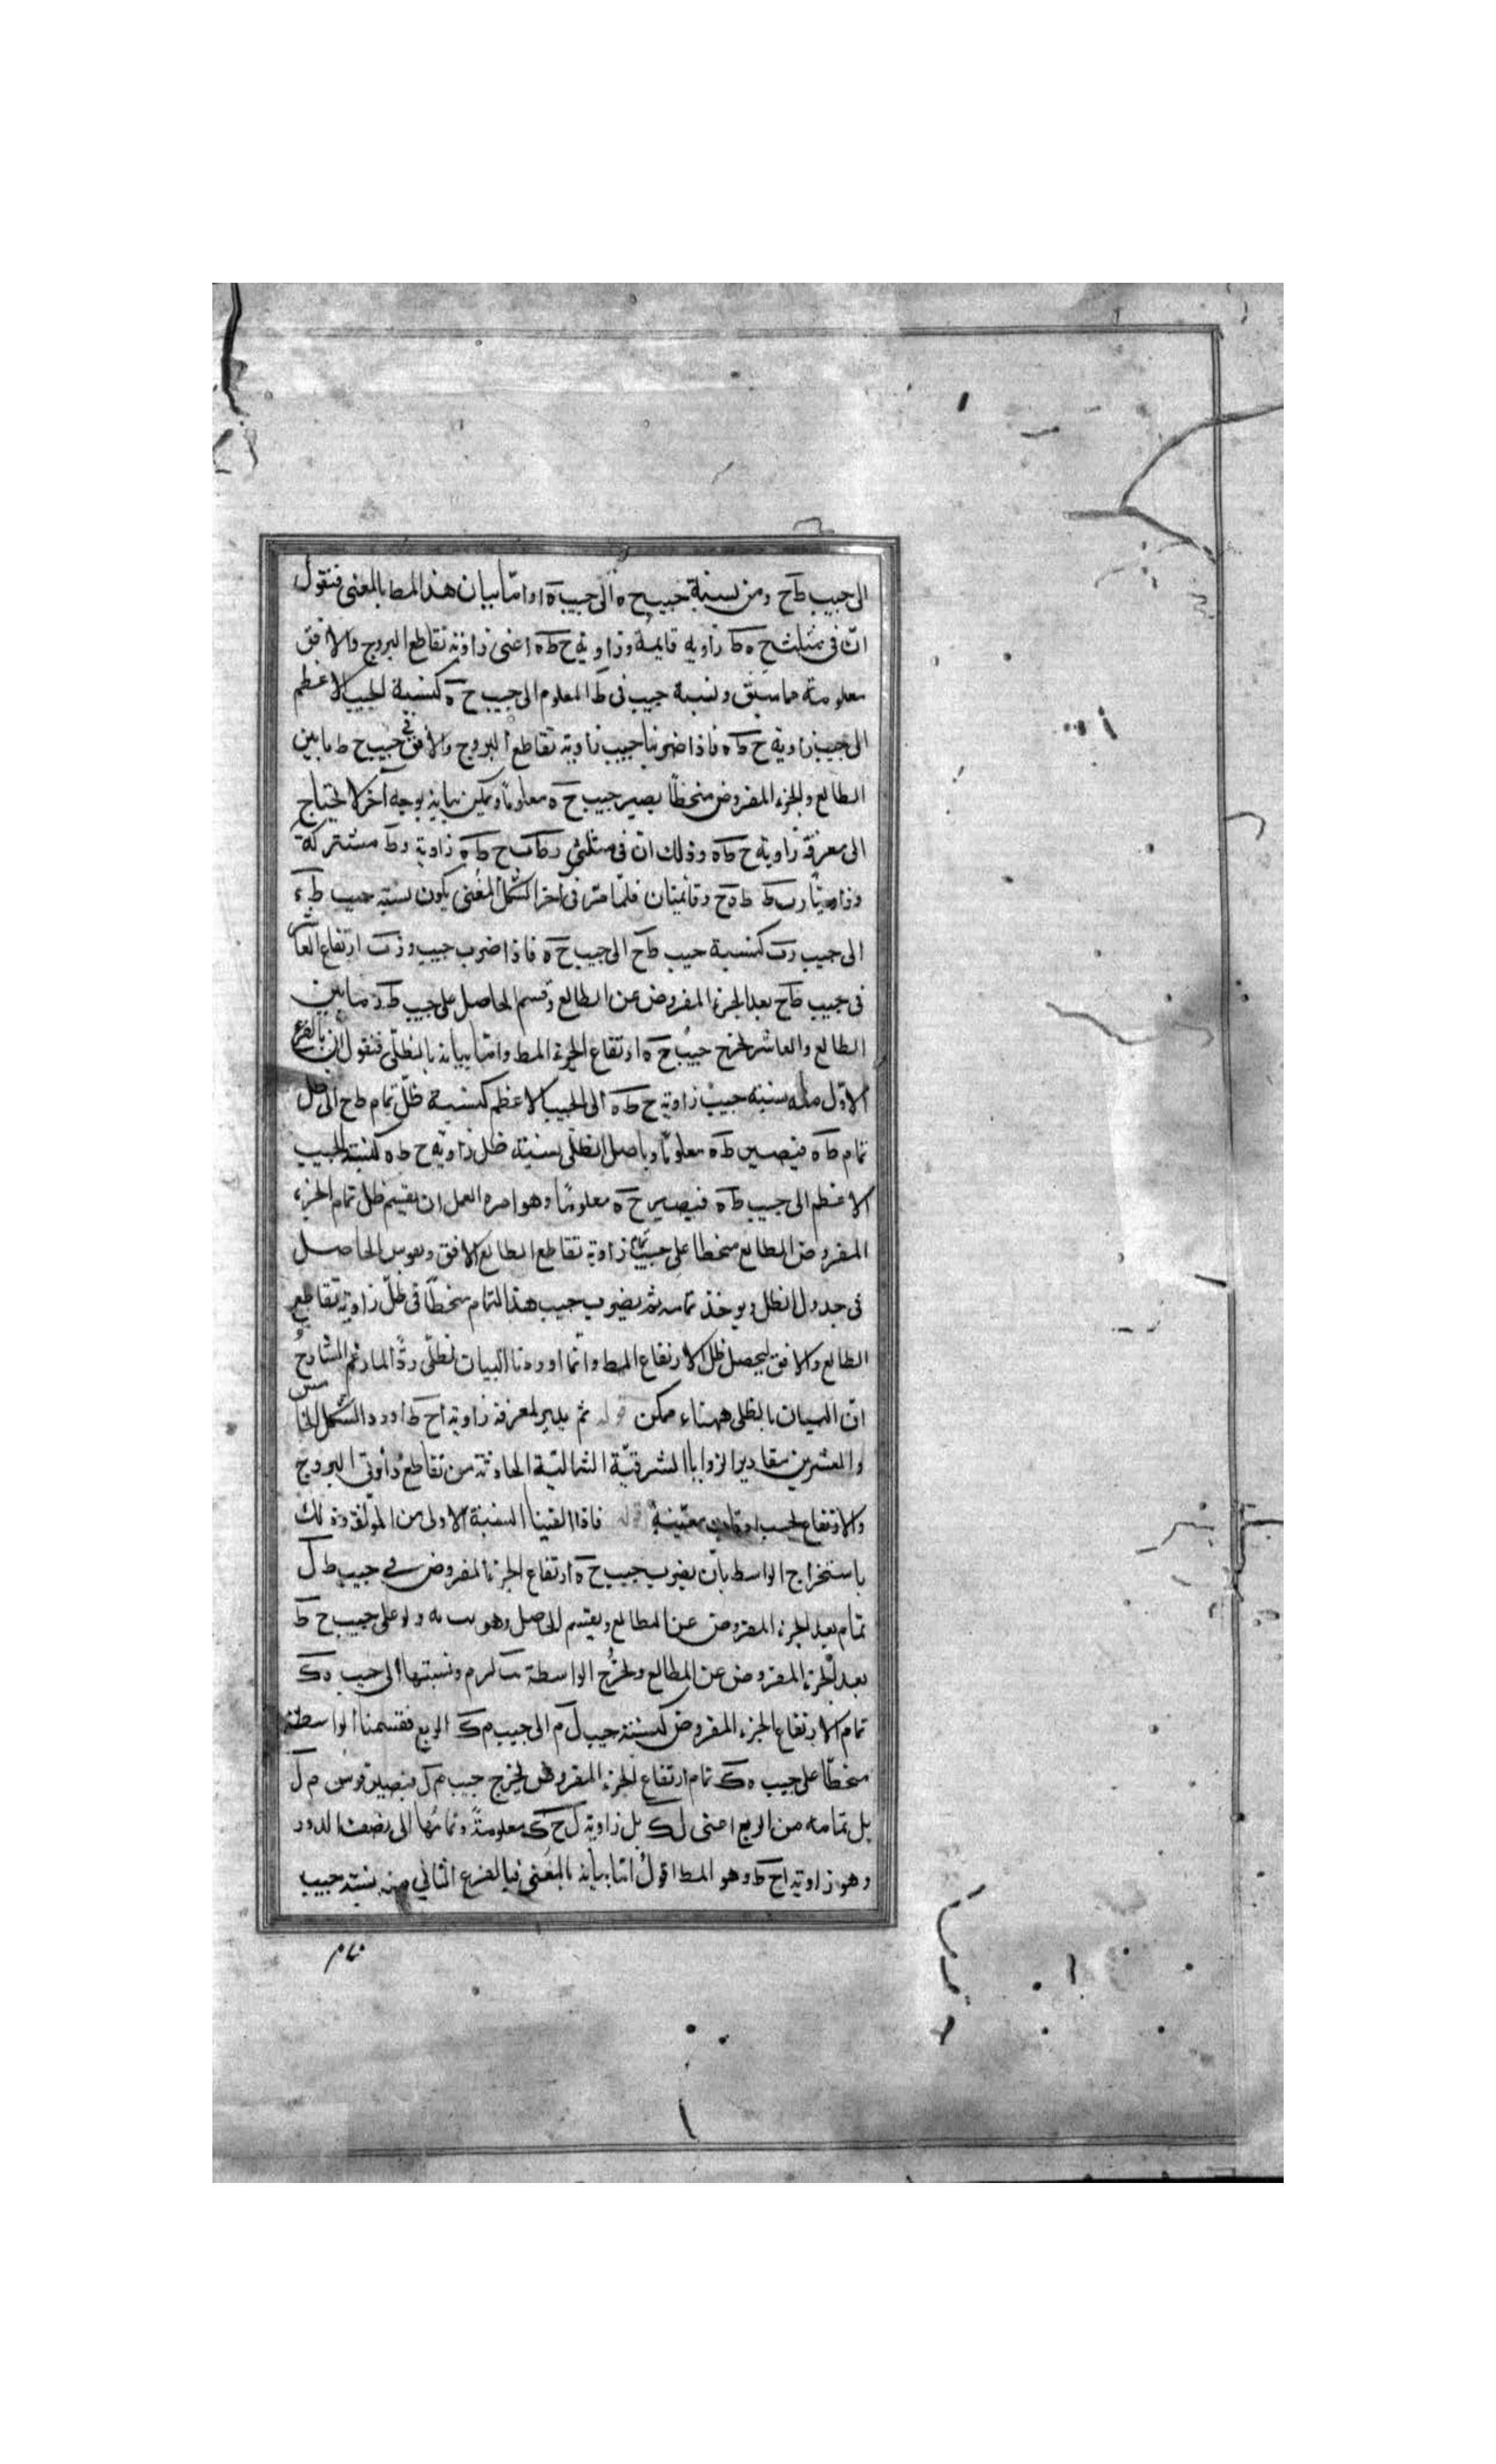 الى جيب ط‍ح ومن نسبة جيب ح ه الى جيب ه ا واما بيان هذا المط بالمغنى فنقول
ان فى مثلث ح ه ط زاويه قايمة وزاوية ح ط ه اعنى زاوية تقاطع البروج والافق
معلومة مما سبق ونسبة جيب فى ط المعلوم الى جيب ح ه كنسبة الجيب الاعظم
الى جيب زاوية ح ط ه فاذا ضربنا جيب زاوية تقاطع البروج والافق فى جيب ح ط ما بين
الطالع والجزء المفروض منحطاً يصير جيب ح ه معلوماً ويمكن بيانه بوجه آخر لا يحتاج
الى معرفة زاوية ح ط ه وذلك ان فى مثلثى ر ط ب ح ط ه زاوية ط مشتركة
وزاويتا ر ب ط ط ه ح قائمتان فلما مر فى آخر الشكل المغنى يكون نسبة جيب ط ر
الى جيب ر ب كنسبة جيب ط ح الى جيب ح ه فاذا ضرب جيب ر ب ارتفاع العاشر
فى جيب ط ح بعد الجزء المفروض عن الطالع وقسم الحاصل على جيب ط ر ما بين
الطالع والعاشر لخرج جيب ح ه ارتفاع الجزء المط واما بيانه بالظلى فنقول ان بالفرع
الاول منه نسبة جيب زاوية ح ط ه الى الجيب الاعظم كنسبة ظل تمام ط ح الى ظل
تمام ط ه فيصير ط ه معلوماً وباصل الظلى نسبة ظل زاوية ح ط ه كنسبة الجيب
الاعظم الى جيب ط ه فيصير ح ه معلومًا وهو امره العمل ان يقسم ظل تمام الجزء
المفروض الطالع منحطا على جيب تمام زاوية تقاطع الطالع الافق ويقوس الحاصل
فى جدول الظل ويوخذ تمامه ثم يضرب جيب هذا التمام منحطّا فى ظلّ زاوية تقاطع
الطالع والافق ليحصل ظل الارتفاع المط وانما اوردنا البيان الظلى ردًّا لما زعم الشارحُ
انّ البيان بالظلى ههنا ممكن قوله ثم يدبر لمعرفة زاوية ا ح ط اورد الشكل الخامس
والعشرين مقادير الزوايا الشرقيّة الشماليّة الحادثة من تقاطع دائرتى البروج
والارتفاع بحسب اوقات معيّنة قوله فاذا القينا النسبة الاولى من المؤلفة وذلك
باستخراج الواسط بان يضرب جيب ح ه ارتفاع الجزء المفروض فى جيب ط ل
تمام بعد الجزء المفروض عن الطالع ويقسم الحاصل وهو على جيب ح ط
بعد الجزء المفروض عن الطالع ولخرج الواسطة ونسبتها الى جيب ه ك
تمام الارتفاع الجزء المفروض كنسبة جيب ل م الى جيب م ك الربع فقسمنا الواسطة
منحطّا على جيب ه ك تمام ارتفاع الجزء المفروض ليخرج جيب م ل فيصير قوس م ل
بل تمامه من الربع اعنى ل ك بل زاوية ل ح ك معلومةً وتمامُها الى نصف الدور
وهو زاوية ا ح ط وهو المط اقول اما بيانه بالمغنى فبالفرع الثانى منه نسبة جيب
تمام